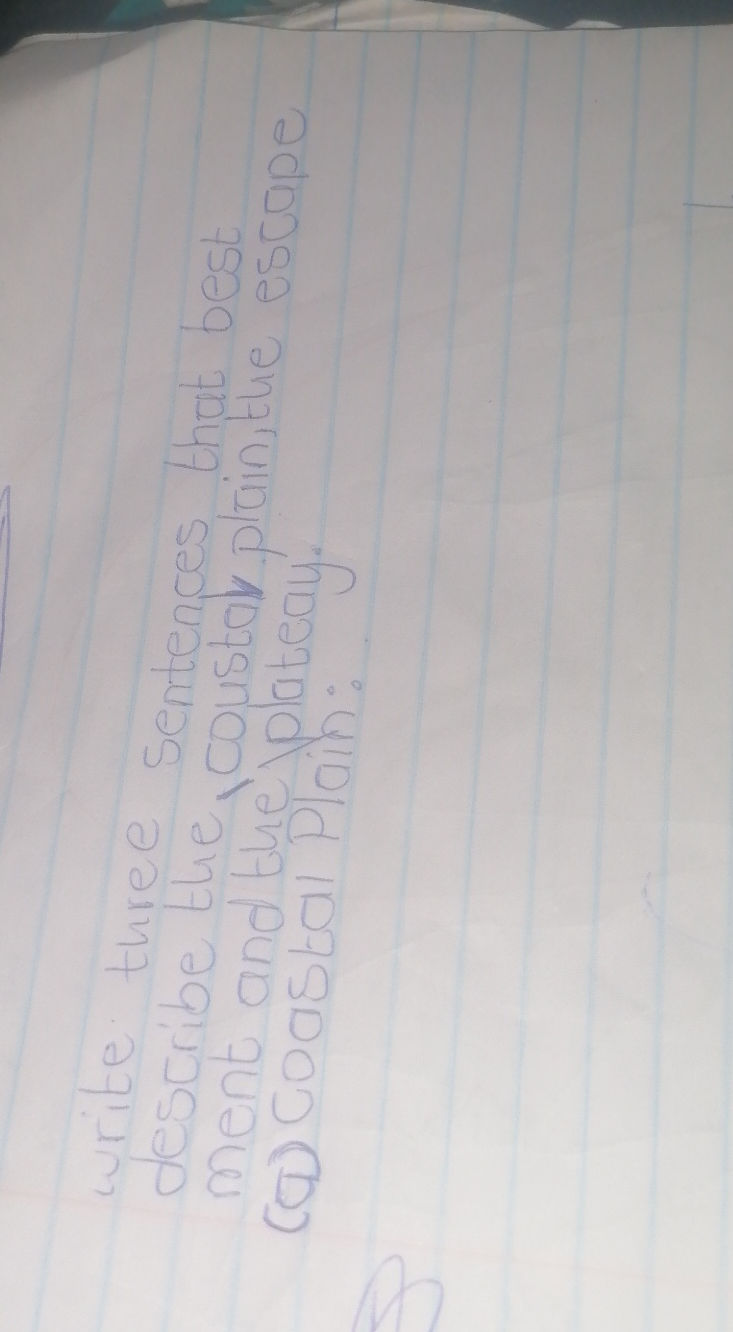 write three sentences that best
describe the coustal plain, the escape
ment and the plateay.
(a) Coastal Plain: